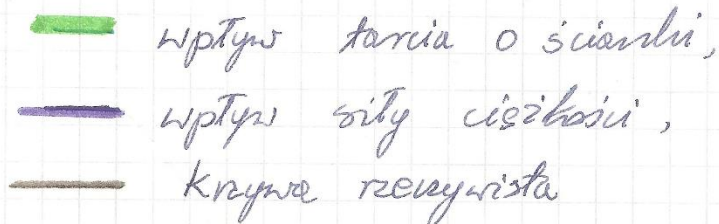 wpływ tarcia o ścianki,
wpływ siły ciężkości,
krzywa rzeczywista